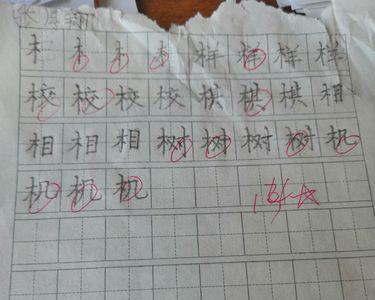 木 木 木 木 样 样 样 样
校 校 校 校 棋 棋 棋 相
相 相 相 树 树 树 树 机
机 机 机